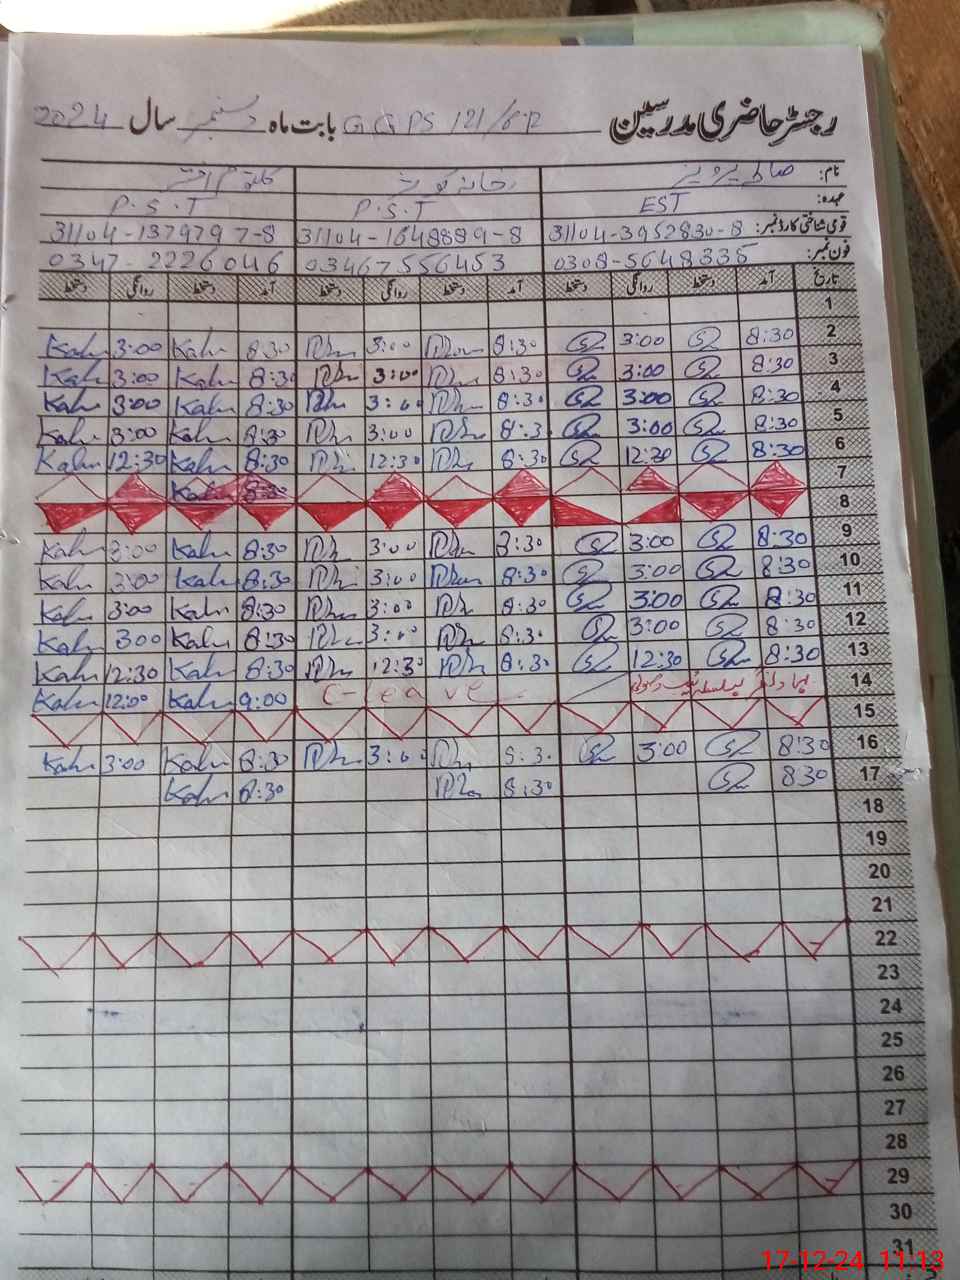 رجسٹر حاضری مدرسین GGPS 121/6.R بابت ماہ دسمبر سال 2024
نام: صائمہ پروین رخسانہ کوثر کلثوم اختر
عہدہ: EST P.S.T P.S.T
قومی شناختی کارڈ نمبر: 31104-3952830-8 31104-1648889-8 31104-1379797-8
فون نمبر: 0308-5648335 03467556453 0347-2226046
تاریخ آمد دستخط روانگی دستخط آمد دستخط روانگی دستخط آمد دستخط روانگی دستخط
1
2 8:30 3:00 8:30 3:00 8:30 Kalu 3:00 Kalu
3 8:30 3:00 8:30 3:00 8:30 Kalu 3:00 Kalu
4 8:30 3:00 8:30 3:00 8:30 Kalu 3:00 Kalu
5 8:30 3:00 8:3 3:00 8:30 Kalu 3:00 Kalu
6 8:30 12:30 8:30 12:30 8:30 Kalu 12:30 Kalu
7 8:30 Kalu
8
9 8:30 3:00 8:30 3:00 8:30 Kalu 3:00 Kalu
10 8:30 3:00 8:30 3:00 8:30 Kalu 3:00 Kalu
11 8:30 3:00 8:30 3:00 8:30 Kalu 3:00 Kalu
12 8:30 3:00 8:30 3:00 8:30 Kalu 300 Kalu
13 8:30 12:30 8:30 12:30 8:30 Kalu 12:30 Kalu
14 C-leave 9:00 Kalu 12:00 Kalu
15
16 8:30 3:00 8:30 3:00 8:30 Kalu 3:00 Kalu
17 830 8:30 8:30 Kalu
18
19
20
21
22
23
24
25
26
27
28
29
30
31
17-12-24 11:13